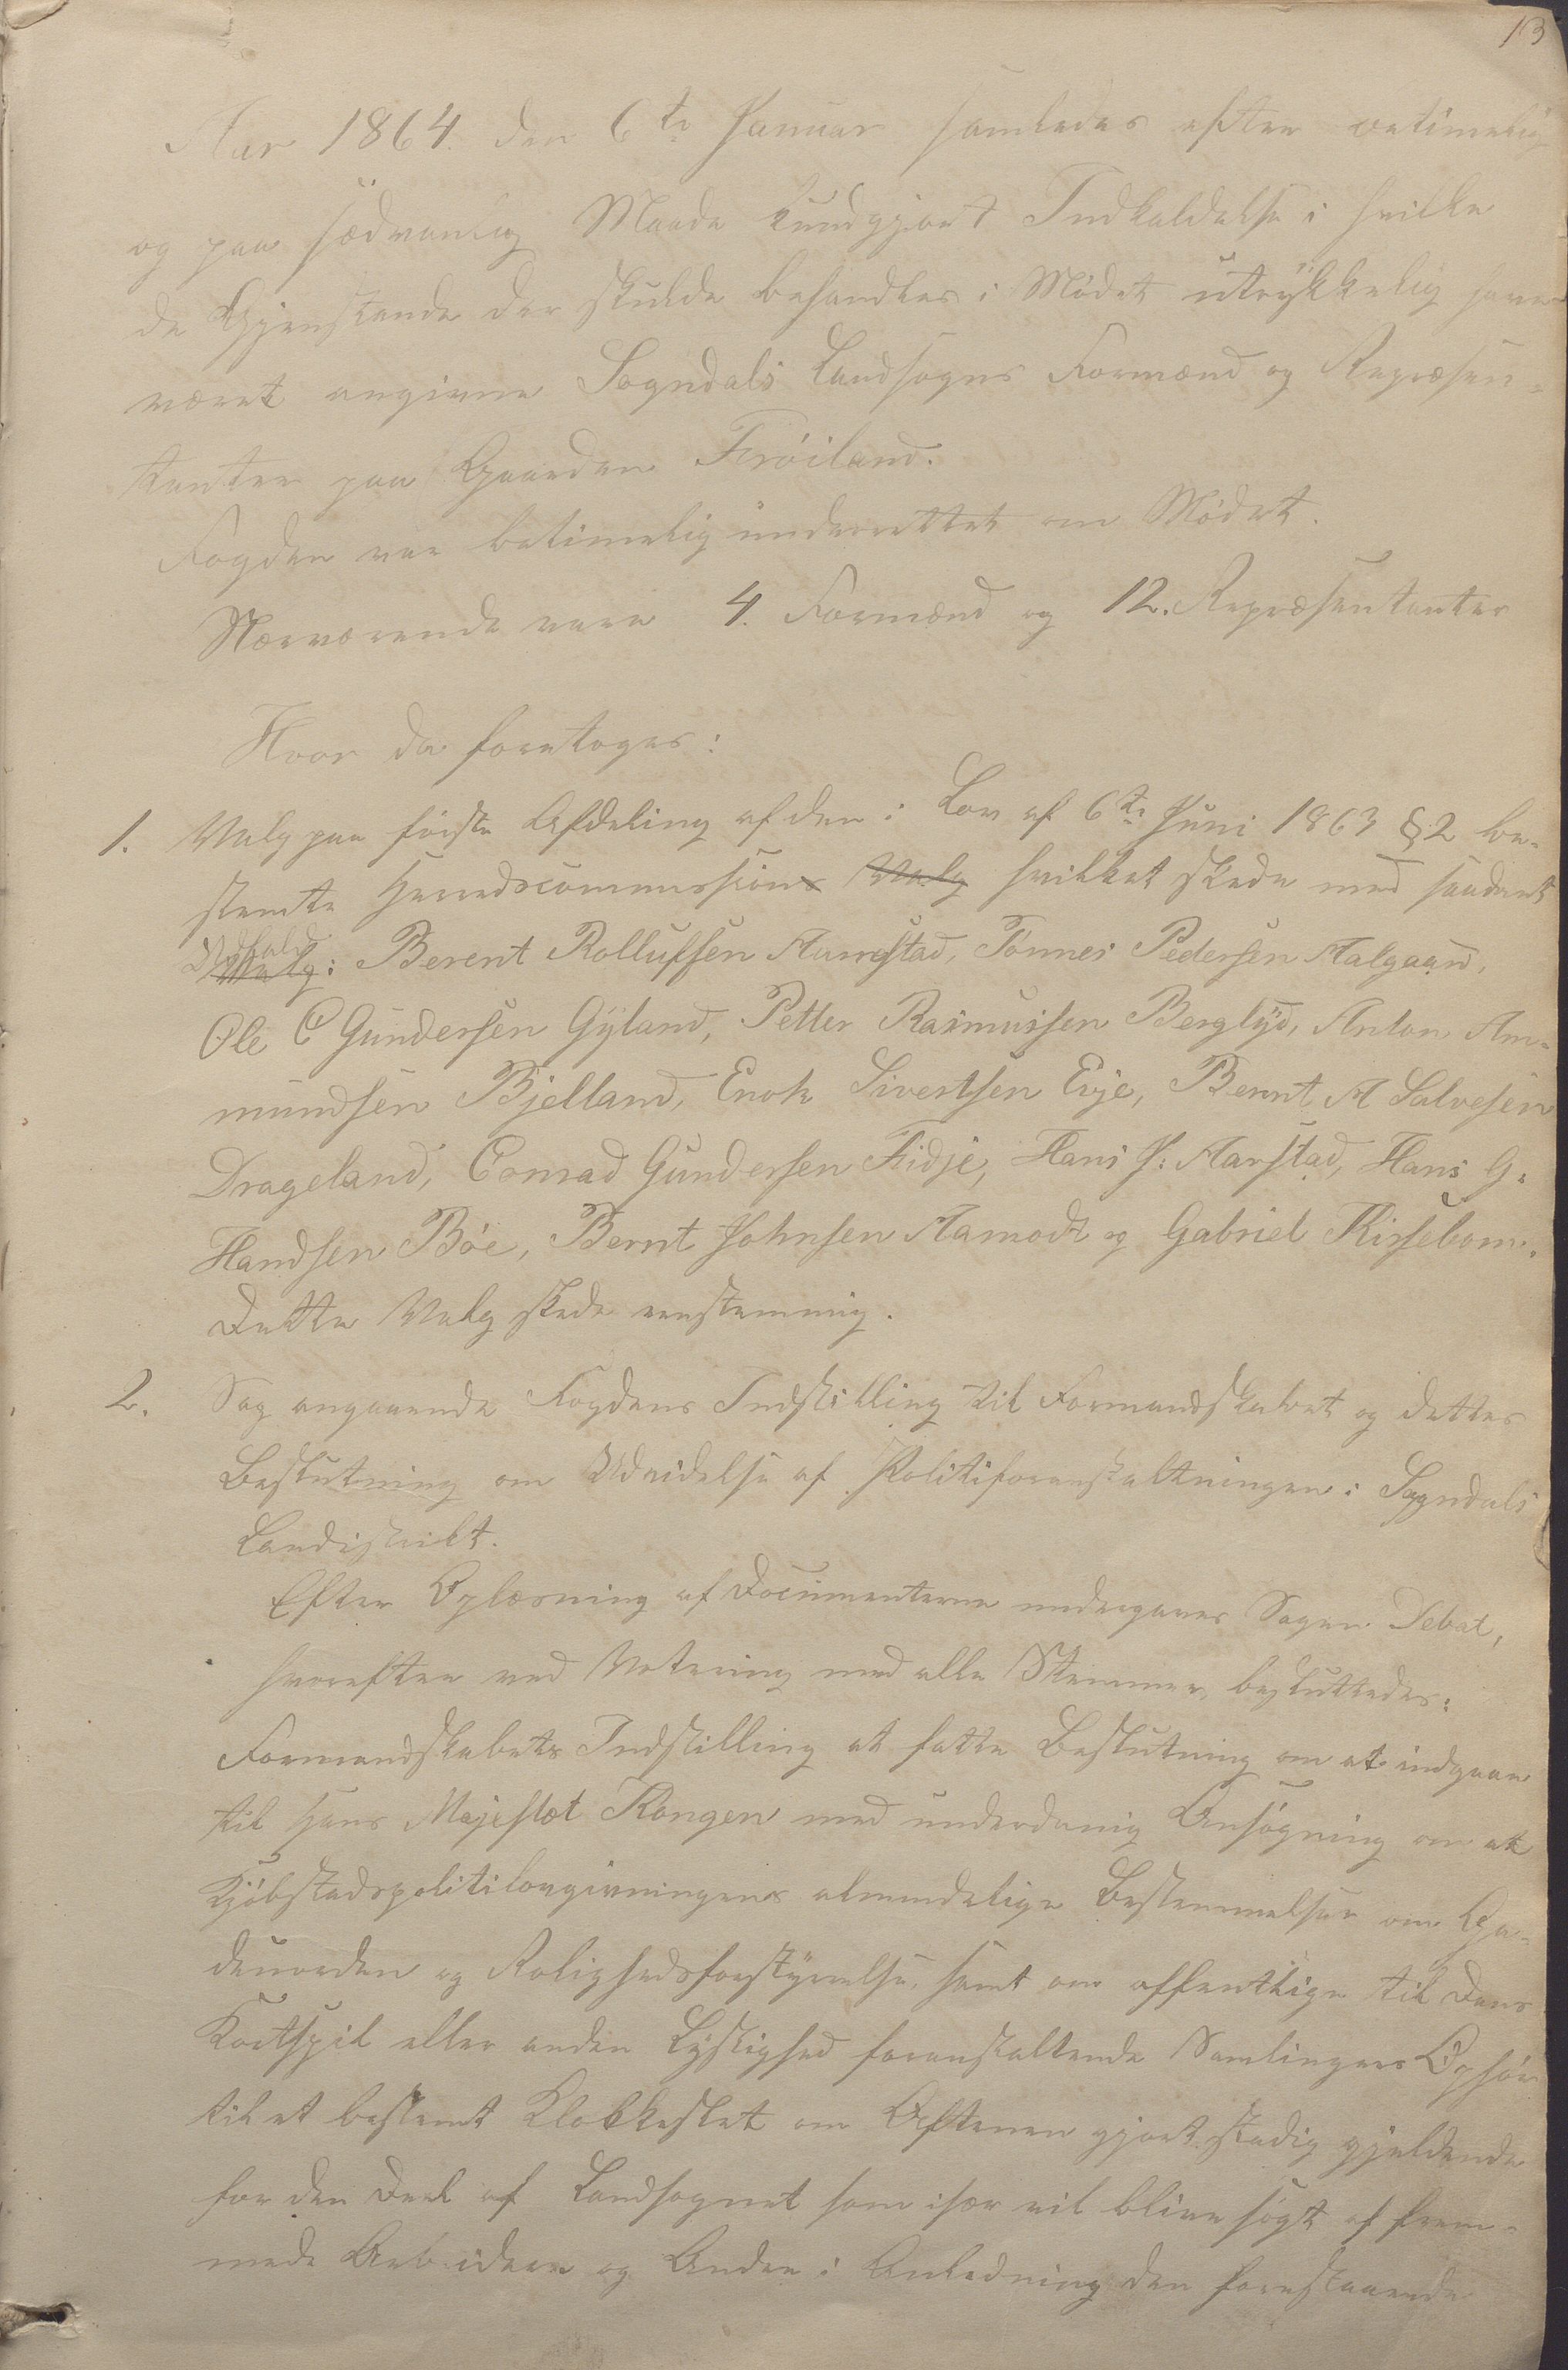 13
Aar 1864. den 6te Januar samledes efter betimelig
og paa sædvanlig Maade kundgjort Indkaldelse i hvilke
de Gjenstande der skulde behandles i Mødet utrykkelig have
været angivne Sogndals Landsogns Formænd og Repræsen-
tanter paa Gaarden Frøiland.
Fogden var betimelig underrettet om Mødet.
Nærværende vare 4. Formænd og 12. Repræsentanter
Hvor da foretoges:
1. Valg paa første Afdeling af den i Lov af 6te Juni 1863 § 2 be-
stemte Herredscommission Valg hvilket skede med saadant
Udfald
Valg: Berent Rolluffsen Aamestad, Tønnes Pedersen Aalgaard,
Ole C Gundersen Gyland, Petter Rasmussen Berglyd, Anton Am-
mundsen Bjelland, Enok Sivertsen Evje, Bernt A Salvesen
Drageland, Conrad Gundersen Fidje, Hans J: Aarstad, Hans G.
Handsen Bøe, Bernt Johnsen Aamodt og Gabriel Kirsebom.
Dette Valg skede eenstemmig.
2. Sag angaaende Fogdens Indstilling til Formandskabet og dettes
Beslutning om Udvidelse af Politiforanstaltningen i Sogndals
Landistrikt.
Efter Oplæsning af Documenterne undergaves Sagen Debat,
hvorefter ved Votering med alle Stemmer besluttedes:
Formandskabets Indstilling at fatte Beslutning om at indgaae
til Hans Majestæt Kongen med underdanig Ansøgning om at
Kjøbstadspolitilovgivningens almindelige Bestemmelser om Ga-
deuorden og Rolighedsforstyrrelse, samt om offentlige til Dans
Kortspil eller anden Lystighed foranstaltende Samlingers Ophør
til et bestemt Klokkeslet om Aftenen gjort stadig gjeldende
for den Deel af Landsognet som især vil blive søgt af frem-
mede Arbeidere og Andre i Anledning den forestaaende